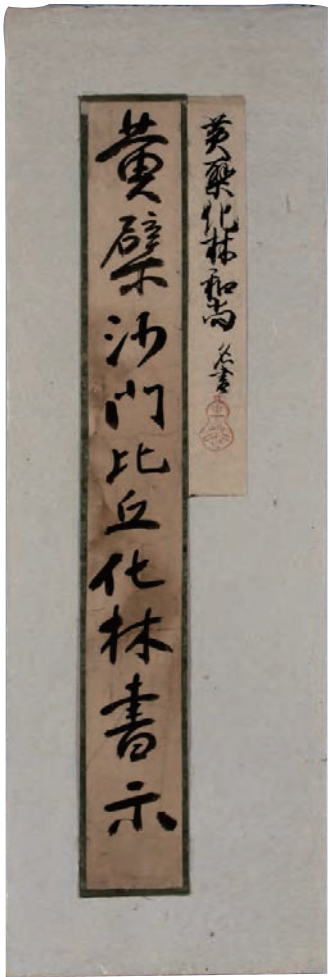 黄檗化林和尚 名書
黄檗沙門比丘化林書示